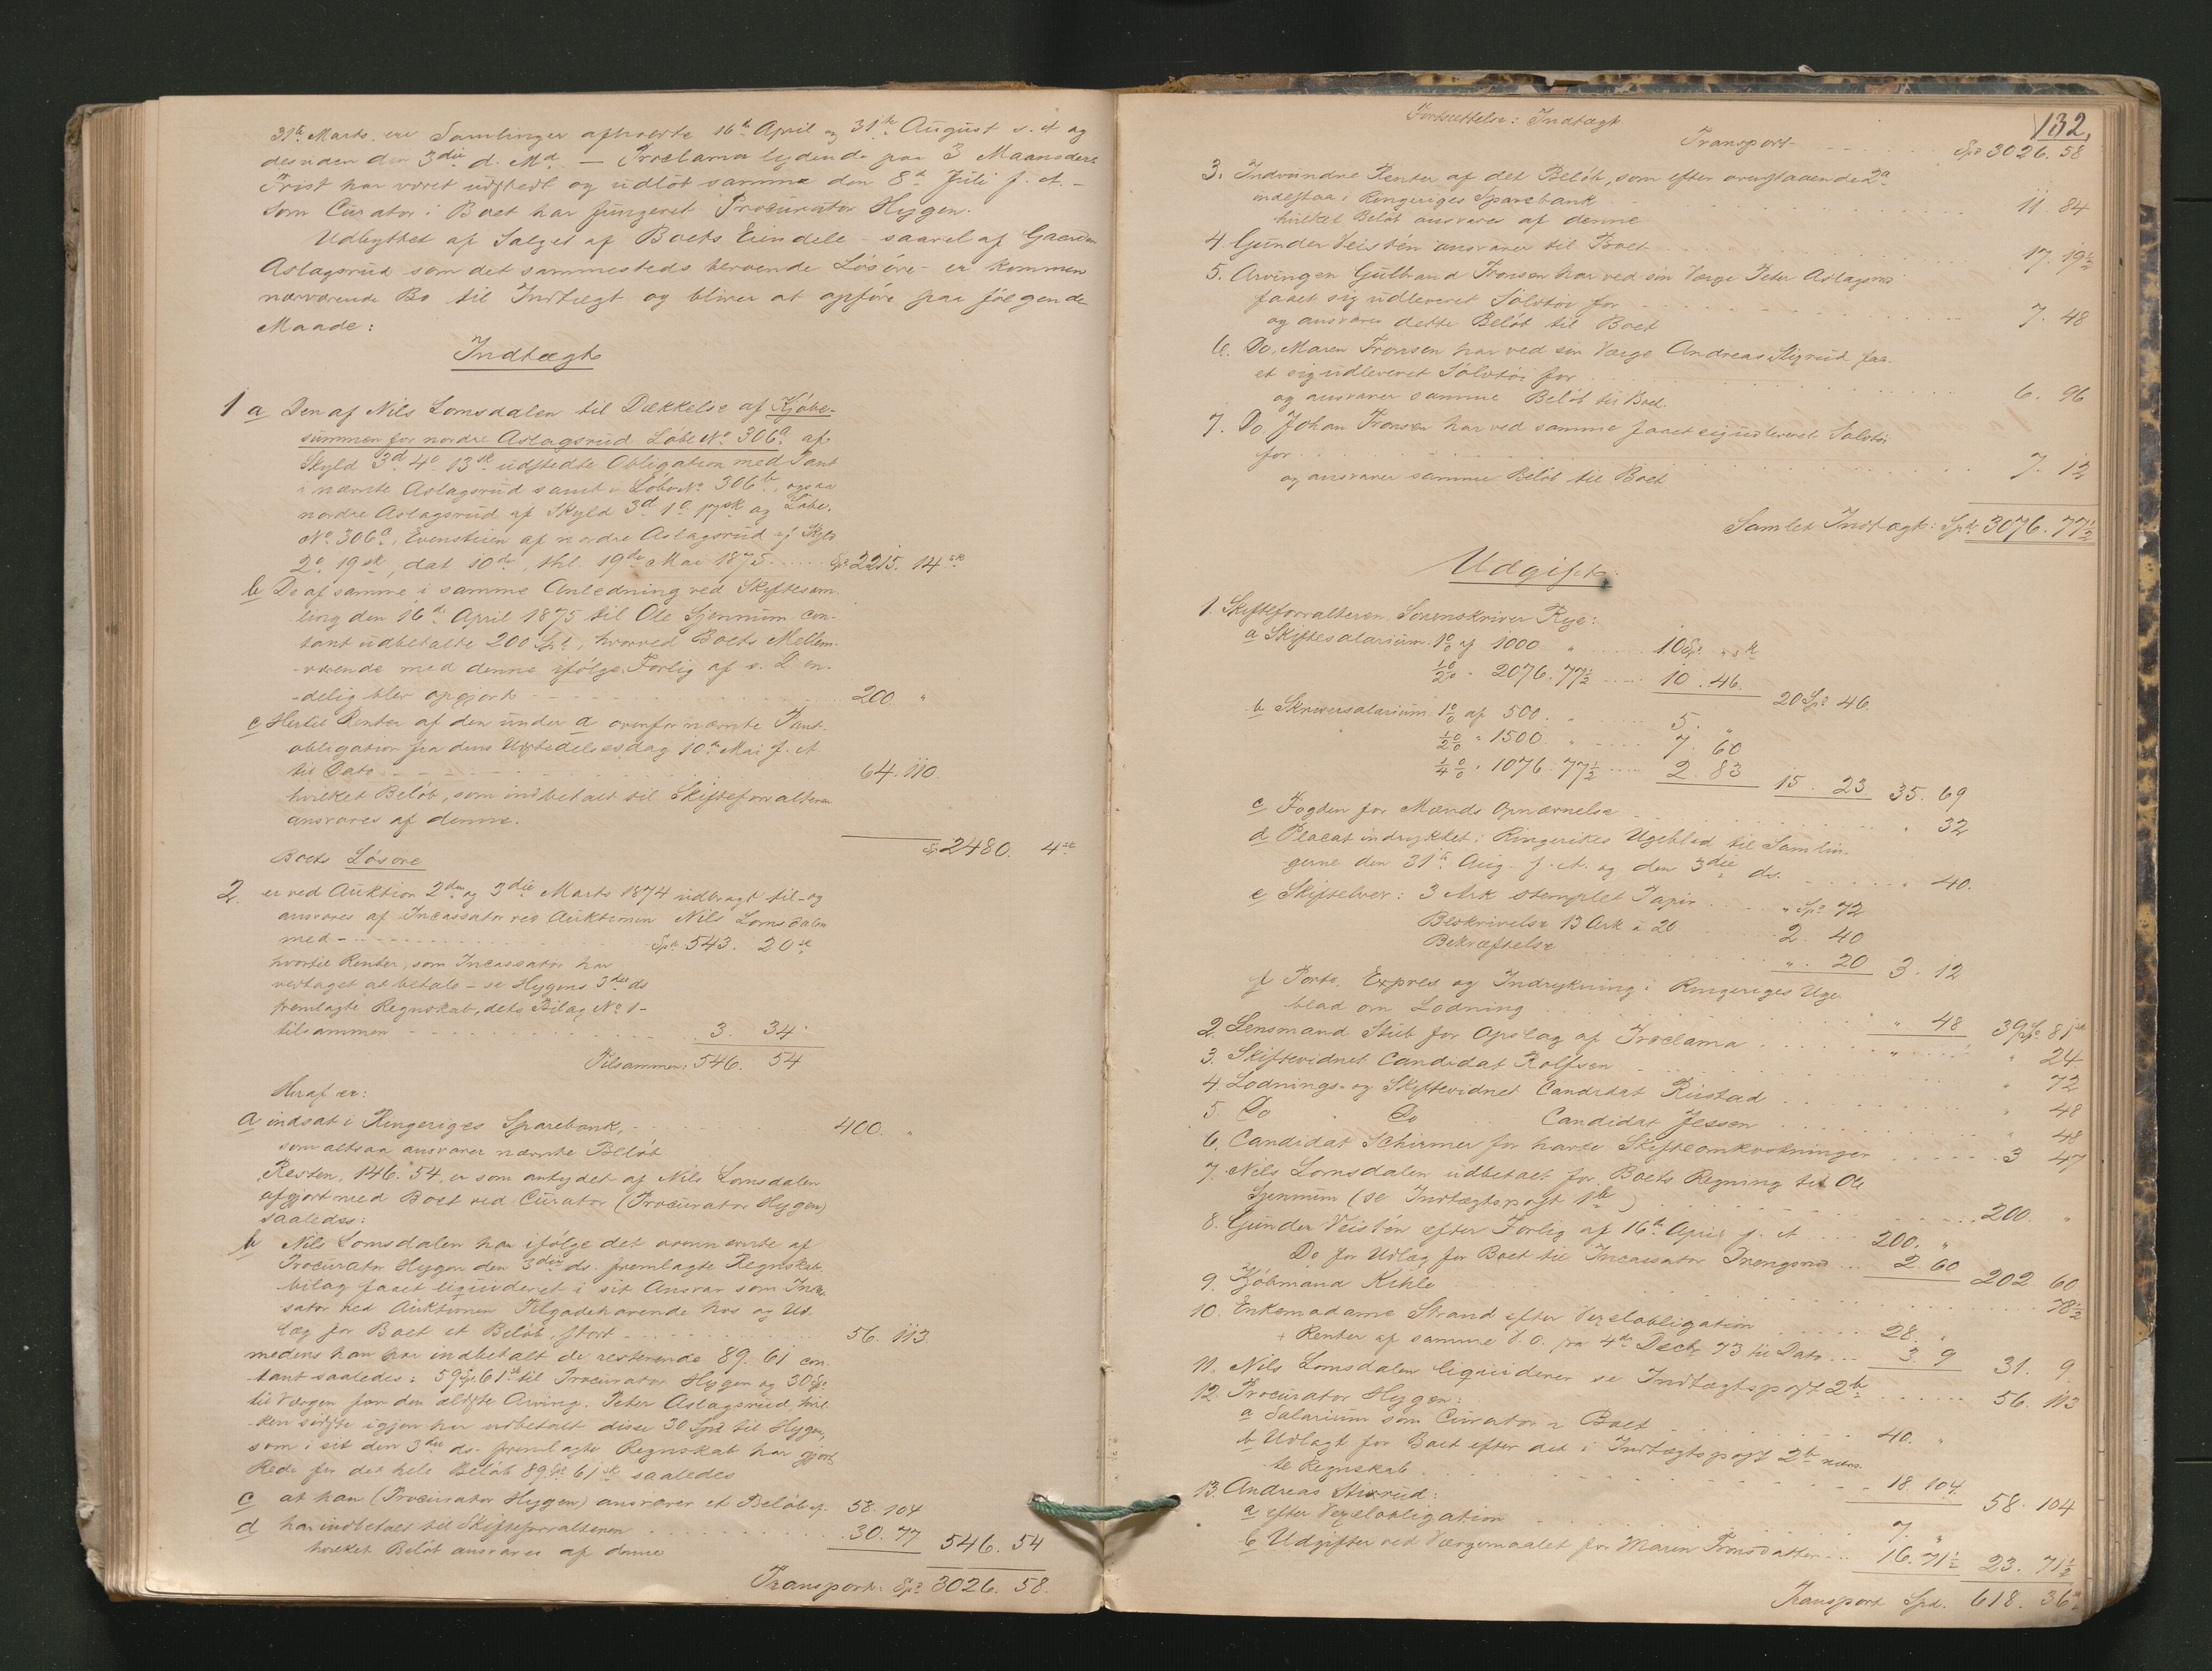 31te Marts, ere Samlinger afholdte 16de April og 31te August s. A og
desuden den 3die d. Md. — Proclama lydende paa 3 Maaneders
Frist har været udstedt og udløb samme den 8de Juli f. A. –
Som Curator i Boet har fungeret Procurator Hygen.
Udbyttet af Salget af Boets Eiendele – saavel af Gaarden
Aslagsrud som det sammesteds beroende Løsøre – er kommen
nærværende Bo til Indtægt og bliver at opføre paa følgende
Maade:
Indtægt
1 a Den af Nils Lomsdalen til Dækkelse af Kjøbe-
summen for nordre Aslagsrud Løbe No 306a af
Skyld 3d 4o 13sk udstedte Obligation med Pant
i nævnte Aslagsrud samt i Løbe No 306b, ogsaa
nordre Aslagsrud af Skyld 3d 1o 17sk og Løbe-
No 306c, Evenstuen af nordre Aslagsrud af Skyld
2o 19sk, dat 10de, thl. 19de Mai 1875 ..... Spd 2215. 14sk
b Do af samme i samme Anledning ved Skiftesam-
ling den 16de April 1875 til Ole Gjermum con-
tant udbetalte 200 Spd, hvorved Boets Mellem-
-værende med denne ifølge Forlig af s. D en-
-delig blev opgjort 200. "
c Hertil Renter af den under a ovenfor nævnte Pant-
obligation fra dens Udstedelsesdag 10de Mai f. A
til Dato 64. 110.
hvilket Beløb, som indbetalt til Skifteforvalteren
ansvares af denne.
Spd 2480. 4sk
Boets Løsøre
2. er ved Auktion 2den og 3die Marts 1874 udbragt til – og
ansvares af Incassator ved Auktionen Nils Lomsdalen
med Spd 543. 20sk
hvortil Renter, som Incassator har
vedtaget at betale – se Hygens 3die ds
fremlagte Regnskab, dets Bilag No 1 –
tilsammen 3. 34.
Tilsammen: 546. 54
Heraf er:
a indsat i Ringeriges Sparebank, 400. "
som altsaa ansvarer nævnte Beløb
Resten, 146. 54, er som antydet af Nils Lomsdalen
afgjort med Boet ved Curator (Procurator Hygen)
saaledes:
b Nils Lomsdalen har ifølge det ovennævnte af
Procurator Hygen den 3die ds. fremlagte Regnskabs-
bilag faaet liquideret i sit Ansvar som Incas-
sator ved Auktionen Tilgodehavende hos og Ud-
læg for Boet et Beløb, stort 56. 113
medens han har indbetalt de resterende 89. 61 con-
tant saaledes: 59 Spd 61sk til Procurator Hygen og 30 Spd
til Værgen for den ældste Arving, Peter Aslagsrud, hvil-
ken sidste igjen har udbetalt disse 30 Spd til Hygen,
som i sit den 3die ds. fremlagte Regnskab har gjort
Rede for det hele Beløb 89 Spd 61sk saaledes
c at han (Procurator Hygen) ansvarer et Beløb af 58. 104
d har indbetalt til Skifteforvalteren 30. 77 546. 54
hvilket Beløb ansvares af denne
Transport: Spd 3026. 58.
132.
Fortsættelse: Indtægt.
Transport Spd 3026. 58
3. Indvundne Renter af det Beløb, som efter ovenstaaende 2a
indestaar i Ringeriges Sparebank 11. 84
hvilket Beløb ansvares af denne
4. Gunder Veistén ansvarer til Boet 17. 19½
5. Arvingen Gulbrand Fronsen har ved sin Værge Peter Aslagsrud
faaet sig udleveret Sølvtøi for 7. 48
og ansvarer dette Beløb til Boet
6. Do, Maren Fronsen har ved sin Værge Andreas Stixrud faa-
et sig udleveret Sølvtøi for 6. 96
og ansvarer samme Beløb til Boet.
7. Do. Johan Fronsen har ved samme faaet sig udleveret Sølvtøi
for 7. 12
og ansvarer samme Beløb til Boet
Samlet Indtægt: Spd 3076. 77½
Udgift:
1. Skifteforvalteren, Sorenskriver Rye:
a Skiftesalarium 1% af 1000 " 10 Spd " sk
½% " 2076. 77½ 10. 46. 20 Spd 46.
b Skriversalarium 1% af 500. " 5. "
½% " 1500. " 7. 60
¼% " 1076. 77½ 2. 83 15. 23. 35. 69
c Fogden for Mænds Opnævnelse " 32
d Placat indrykket i Ringerikes Ugeblad til Samlin-
gerne den 31te Aug. f. A. og den 3die ds. " 40.
e Skiftebrev: 3 Ark stemplet Papir " Spd 72
Beskrivelse 13 Ark à 20 2. 40
Bekræftelse " 20 3. 12
f Porto, Expres og Indrykning i Ringeriges Uge-
blad om Lodning " 48 39 Spd 81sk
2. Lensmand Stub for Opslag af Proclama " 24
3. Skiftevidnet Candidat Rolfsen " 72
4. Lodnings- og Skiftevidnet Candidat Rustad " 48
5. Do Do Candidat Jessen " 48
6. Candidat Schirmer for havte Skifteomkostninger 3 47
7. Nils Lomsdalen udbetalt for Boets Regning til Ole
Gjermum (se Indtægtspost 1b) 200. "
8. Gunder Veistén efter Forlig af 16de April f. A 200. "
Do for Udlæg for Boet til Incassator Trengsrud 2. 60 202. 60
9. Kjøbmand Kihle 78½
10. Enkemadame Strand efter Vexelobligation 28. "
+ Renter af samme 5. O. fra 4de Decbr 73 til Dato 3. 9 31. 9.
11. Nils Lomsdalen liquiderer se Indtægtspost 2b 56. 113
12. Procurator Hygen:
a Salarium som Curator i Boet 40. "
b Udlagt for Boet efter det i Indtægtspost 2b nævn-
te Regnskab 18. 104. 58. 104
13. Andreas Stixrud:
a efter Vexelobligation 7. "
b Udgifter ved Værgemaalet for Maren Fronsdatter 16. 71½ 23. 71½
Transport Spd. 618. 36